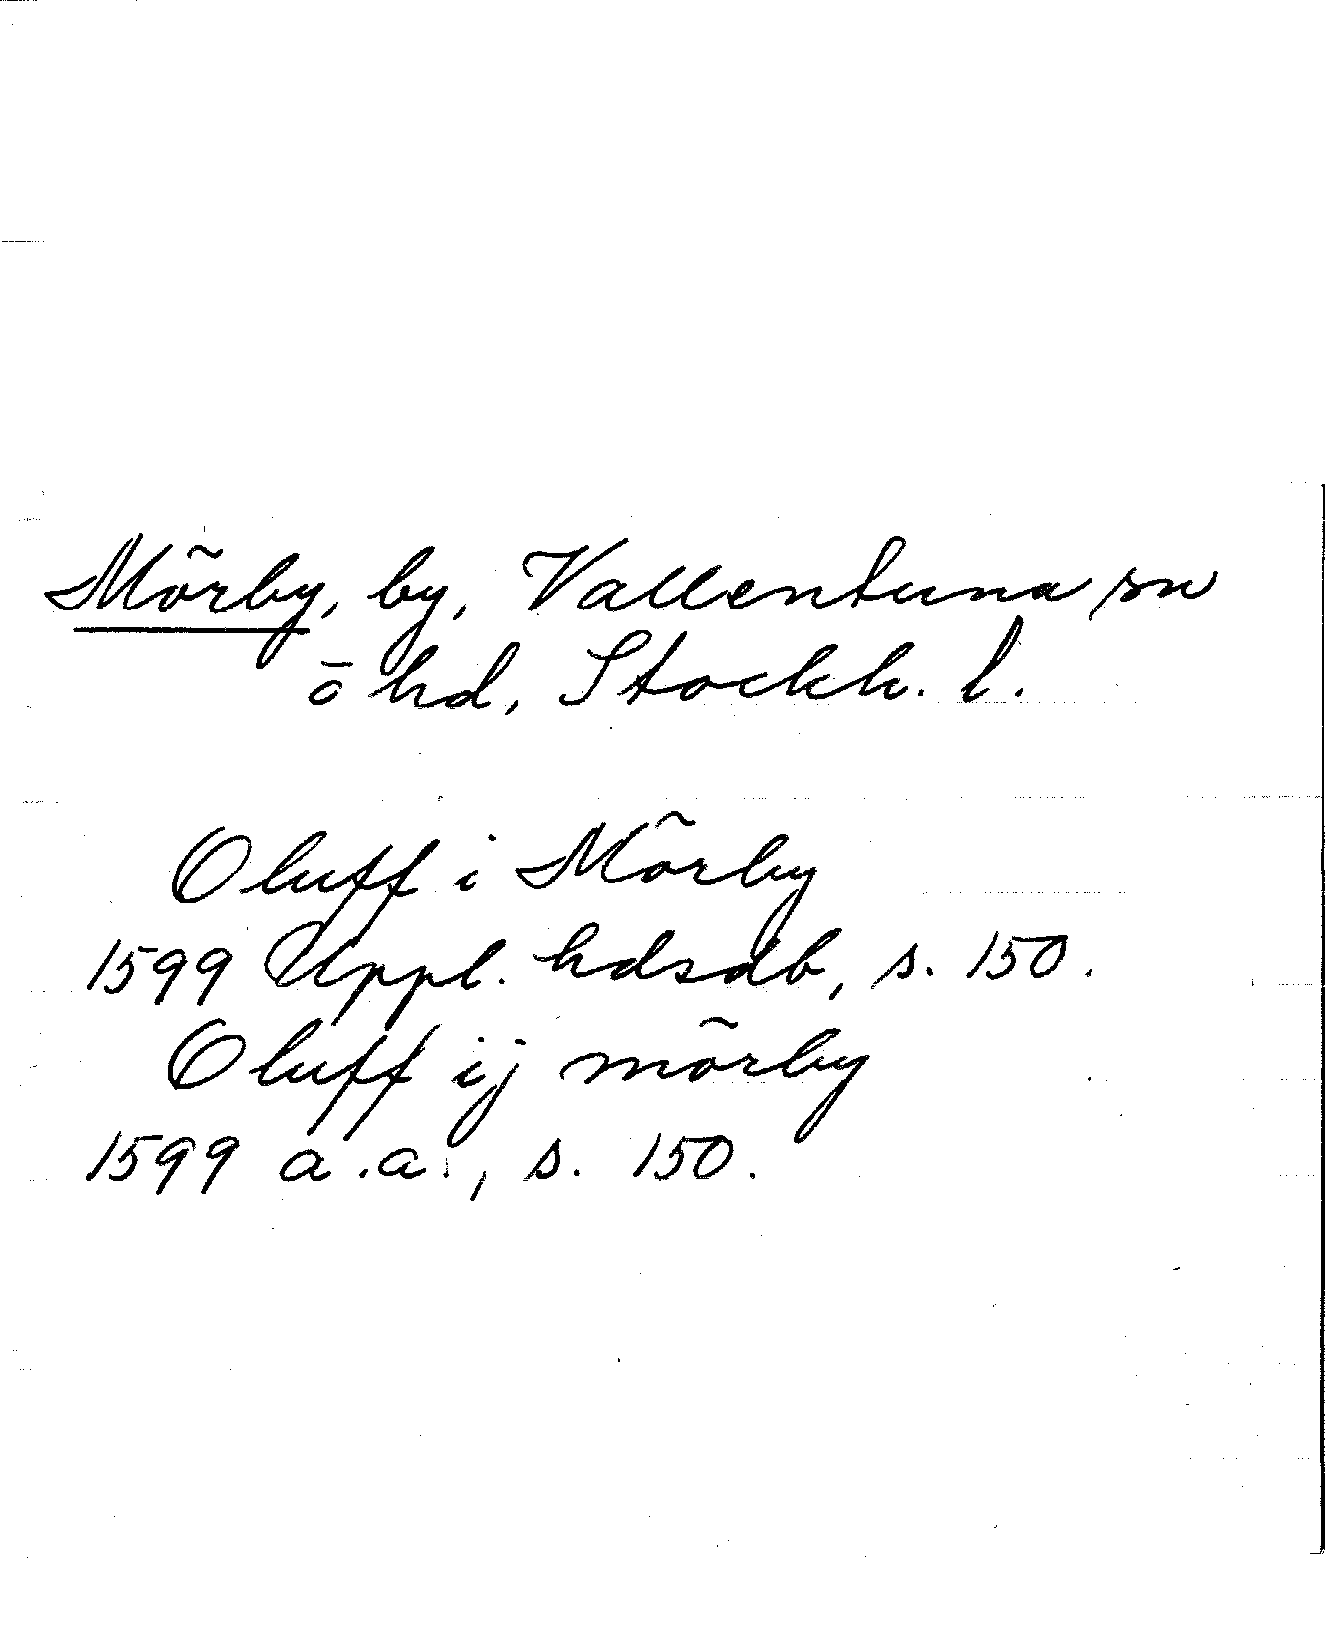 Mörby, by, Vallentuna sn
ö hd, Stockh. l.
Oluff i Mörby
1599 Uppl. hdsdb, s. 150.
Oluff ij mörby
1599 a.a., s. 150.